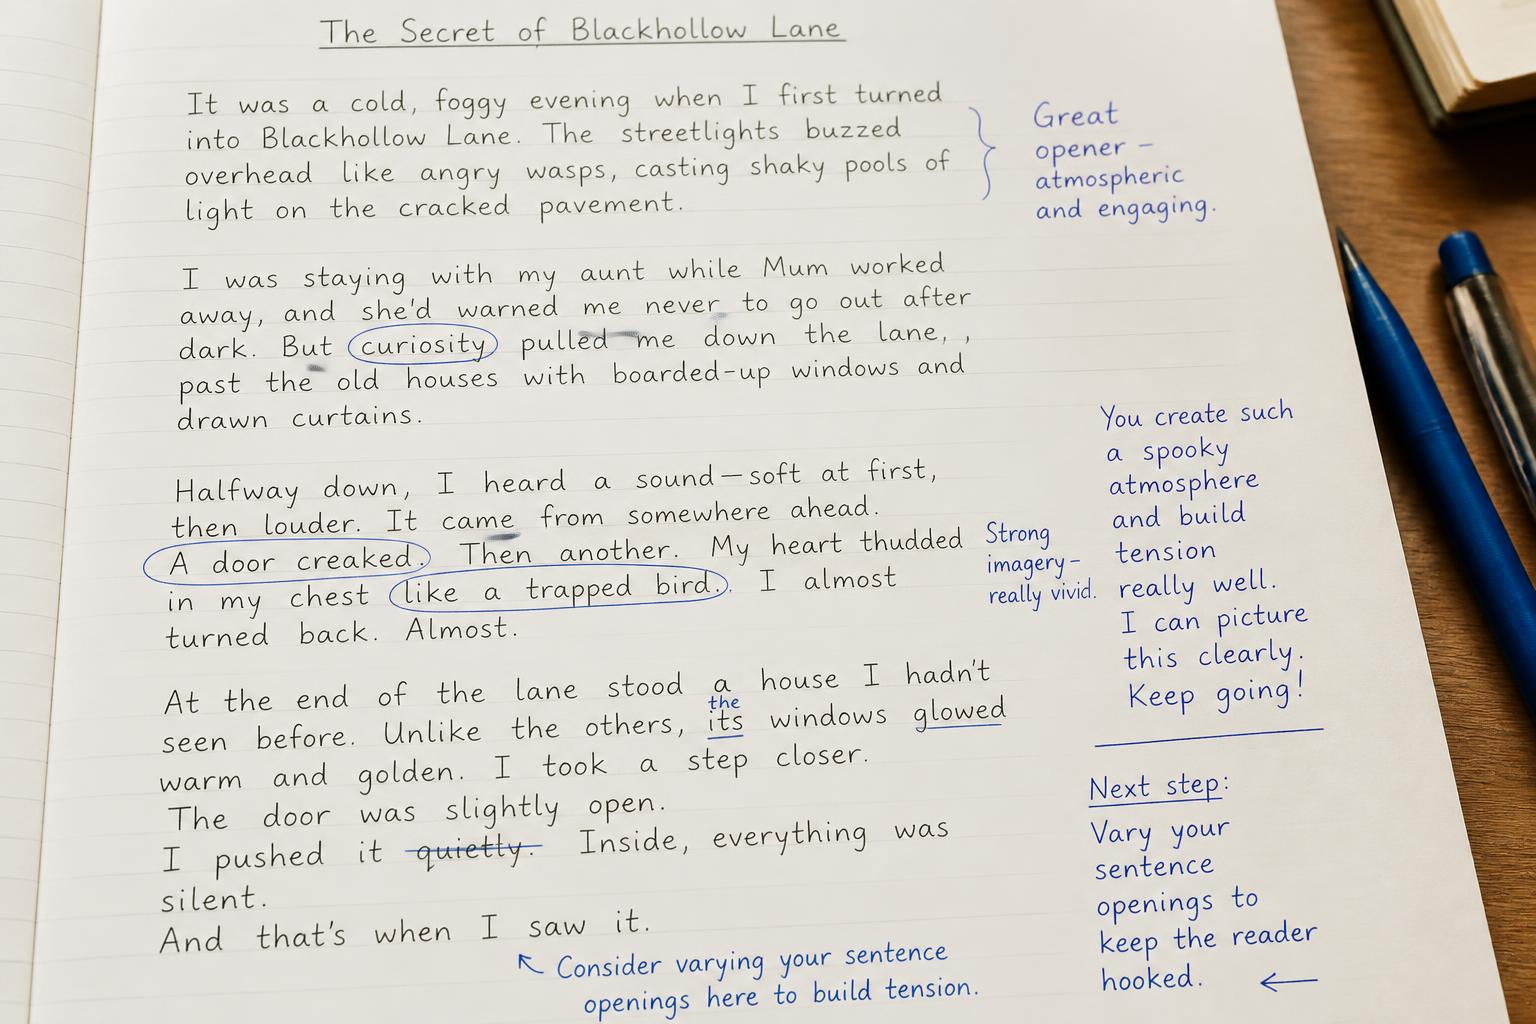 The Secret of Blackhollow Lane
It was a cold, foggy evening when I first turned
into Blackhollow Lane. The streetlights buzzed
overhead like angry wasps, casting shaky pools of
light on the cracked pavement.
Great
opener –
atmospheric
and engaging.
I was staying with my aunt while Mum worked
away, and she'd warned me never to go out after
dark. But curiosity pulled me down the lane, ,
past the old houses with boarded-up windows and
drawn curtains.
Halfway down, I heard a sound – soft at first,
then louder. It came from somewhere ahead.
A door creaked. Then another. My heart thudded
in my chest like a trapped bird.. I almost
turned back. Almost.
Strong
imagery –
really vivid.
You create such
a spooky
atmosphere
and build
tension
really well.
I can picture
this clearly.
Keep going!
At the end of the lane stood a house I hadn't
the
seen before. Unlike the others, its windows glowed
warm and golden. I took a step closer.
The door was slightly open.
I pushed it quietly. Inside, everything was
silent.
And that's when I saw it.
Consider varying your sentence
openings here to build tension.
Next step:
Vary your
sentence
openings to
keep the reader
hooked.